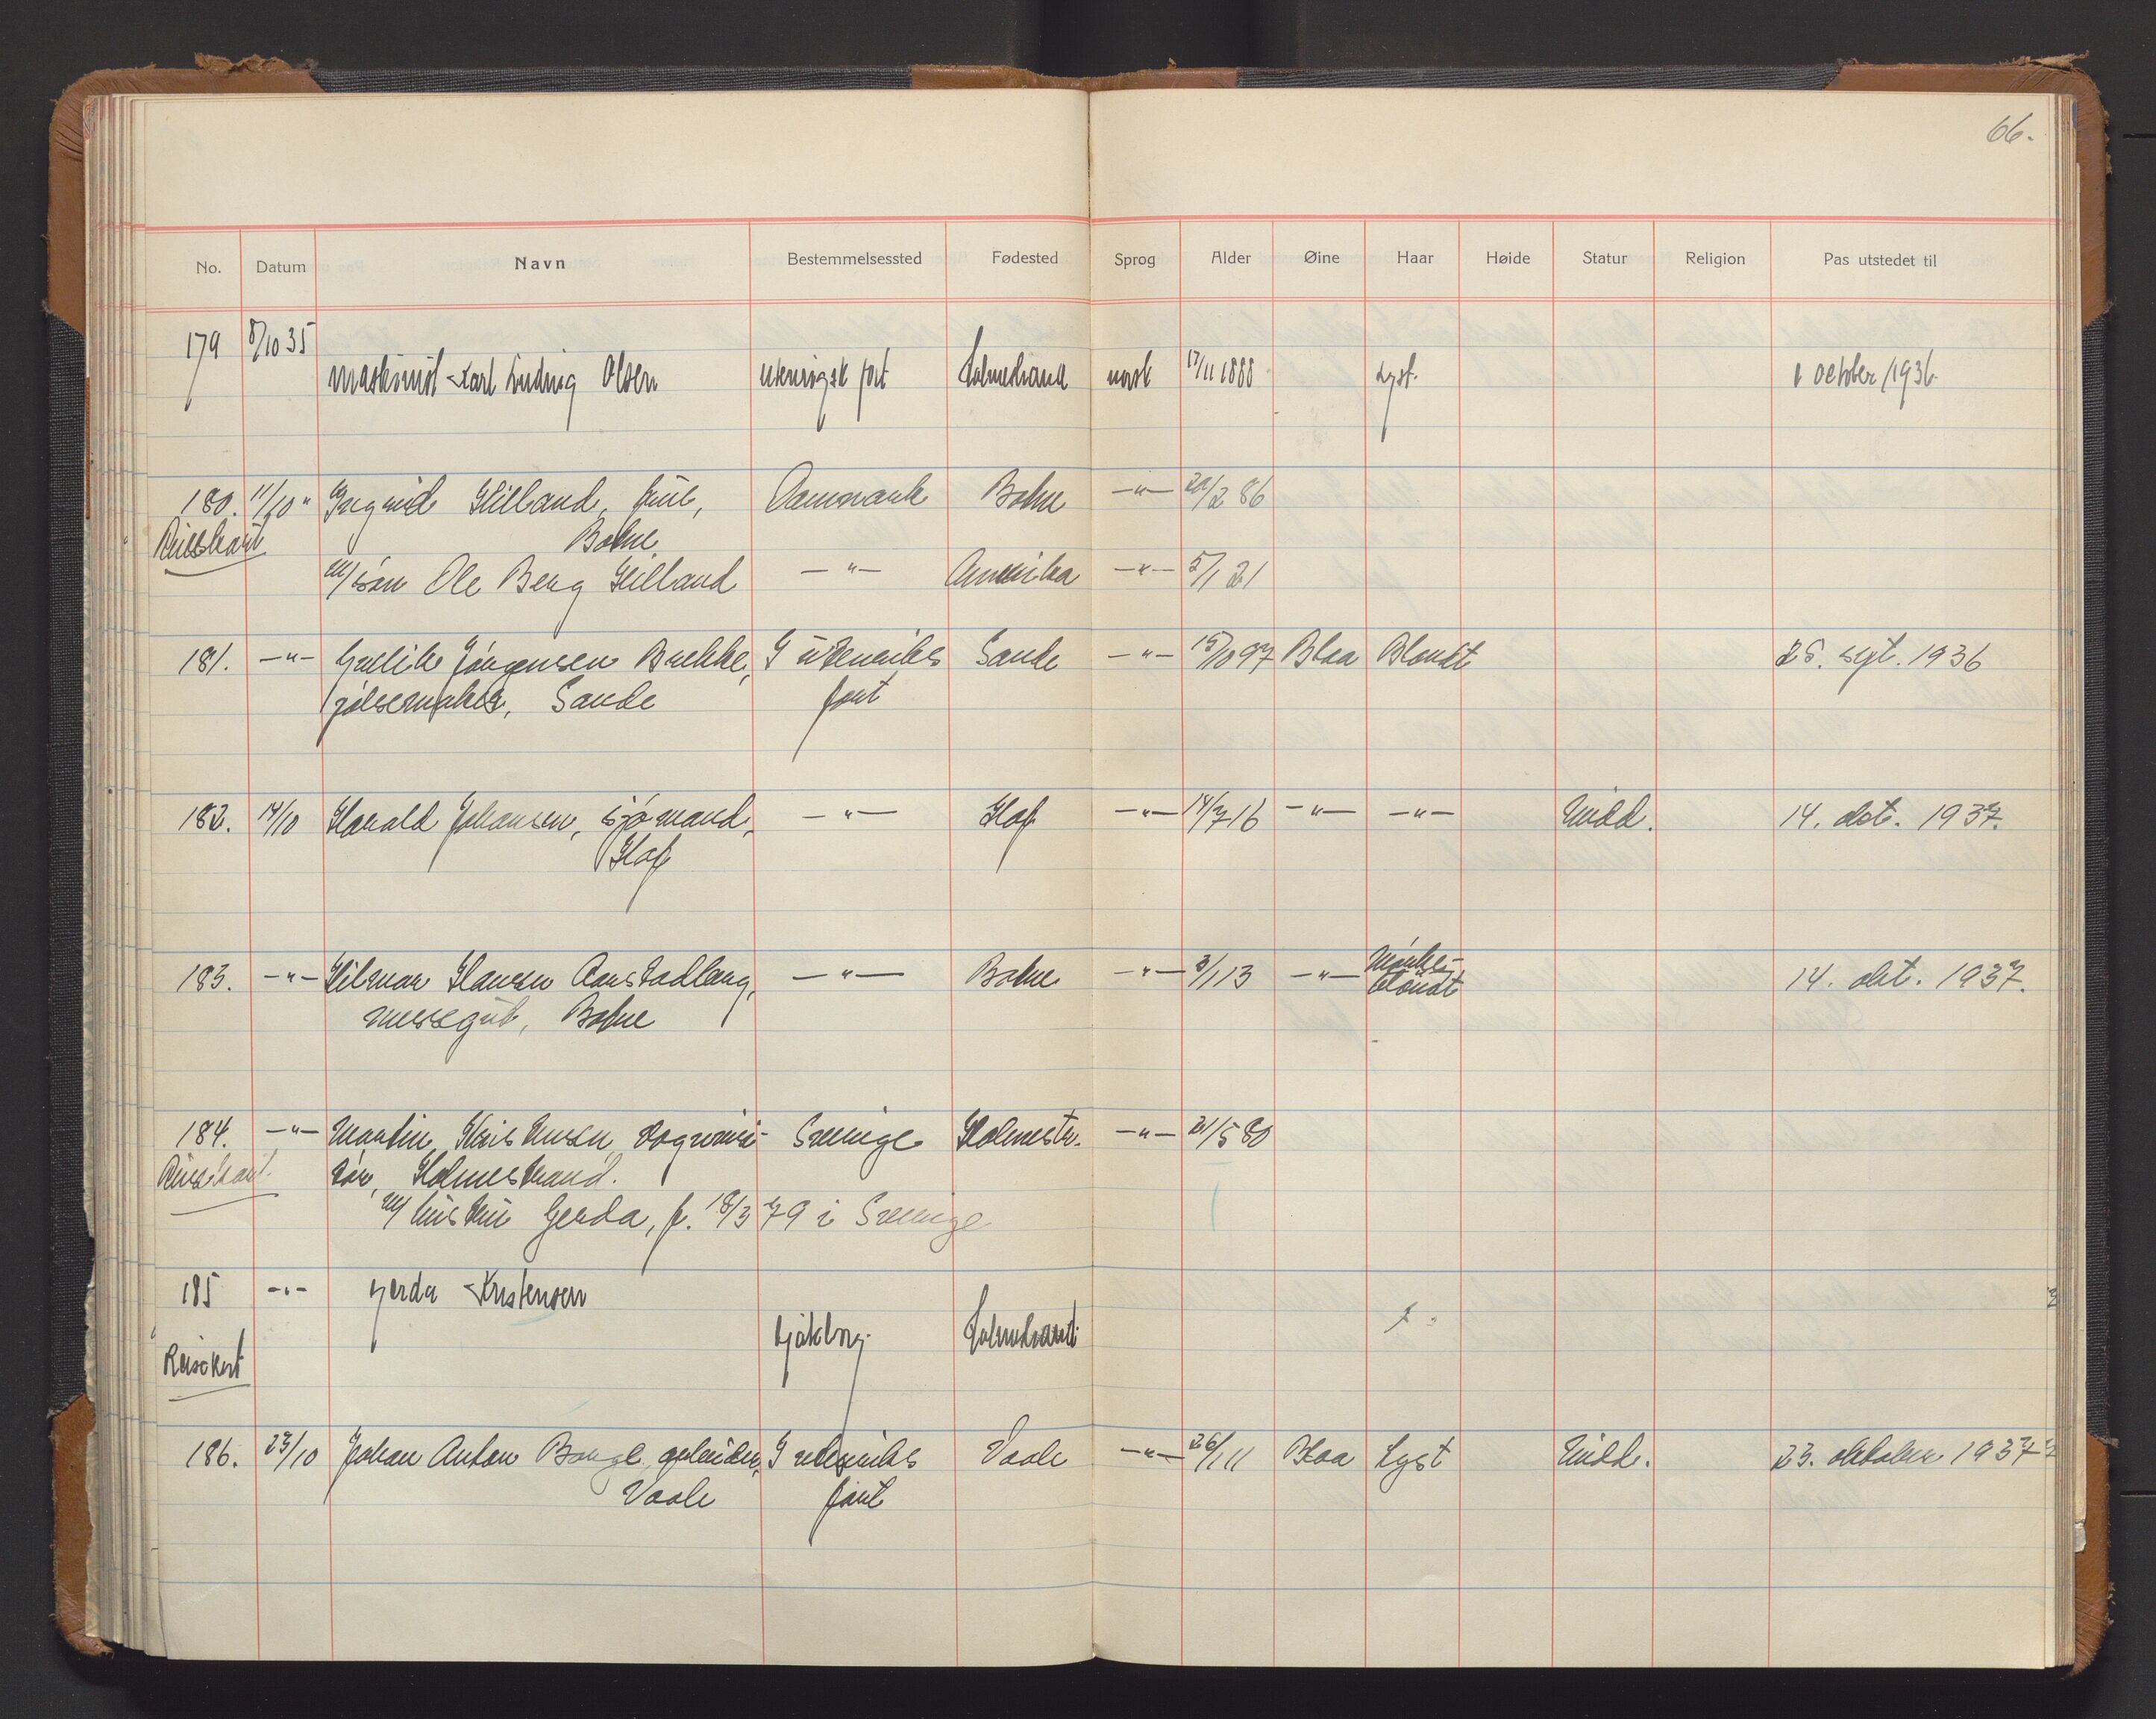 66.
No. Datum Navn Bestemmelsessted Fødested Sprog Alder Øine Haar Høide Statur Religion Pas utstedet til
179 8/10 35
maskinist Karl Ludvig Olsen utenrigsk fart Holmestrand norsk 17/11 1888 Lyst. 1 october 1936.
180. 11/10 " Ingrid Hilland, frue, Danmark Botne —"— 20/2 86
Reisekort Botne
m/ søn Ole Berg Hilland —"— Amerika —"— 5/1 21
181. —"— Gullik Jörgensen Brekke, I utenriks Sande —"— 15/10 97 Blaa Blondt 25. sept. 1936
pölsemaker, Sande fart
182. 14/10 Harald Johansen, sjömand, —"— Hof —"— 14/7 16 —"— —"— Midd. 14. okt. 1937.
Hof
183. —"— Hilmar Hansen —"— Botne —"— 3/1 13 —"— Mörke- 14. okt. 1937.
messegut, Botne blondt
184. —"— Martin Kristensen, vognvisi- Sverige Holmestr. —"— 21/5 80
Reisekort. tör, Holmestrand.
m/ hustru Gerda, f. 18/3 79 i Sverige
185 —"— Gerda Kristensen
Gøteborg. Holmestrand.
Reisekort
186. 23/10 Johan Anton I utenriks Vaale —"— 26/1 11 Blaa Lyst Midd. 23. oktober 1937
Vaale fart